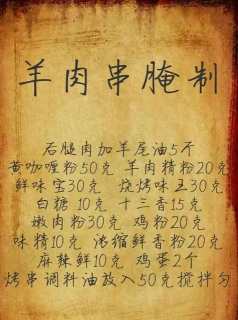 羊肉串腌制
后腿肉加羊尾油5斤
黄咖喱粉50克 羊肉精粉20克
鲜味宝30克 烧烤味王30克
白糖10克 十三香15克
嫩肉粉30克 鸡粉20克
味精10克 浓缩鲜香粉20克
麻辣鲜10克 鸡蛋2个
烤串调料油放入50克搅拌匀